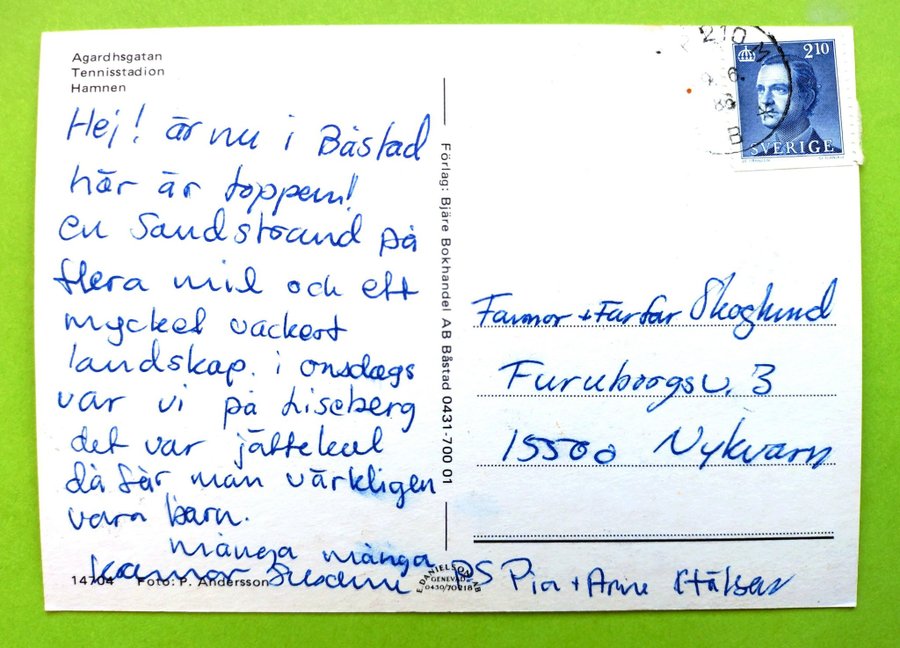 Agardhsgatan
Tennisstadion
Hamnen
Hej! är nu i Båstad
här är toppen!
en Sandstrand på
flera mil och ett
mycket vackert
landskap. i onsdags
var vi på Liseberg
det var jättekul
då får man värkligen
vara barn.
många många
kramar Susanne
PS Pia + Arne Hälsar
14704 Foto: P. Andersson
E. DANIELSON AB
GENEVAD
0430/70218
Förlag: Bjäre Bokhandel AB Båstad 0431-700 01
210 M
9. 6.
86
B
2 10
SVERIGE
Farmor + Farfar Skoglund
Furuborgsv. 3
15500 Nykvarn